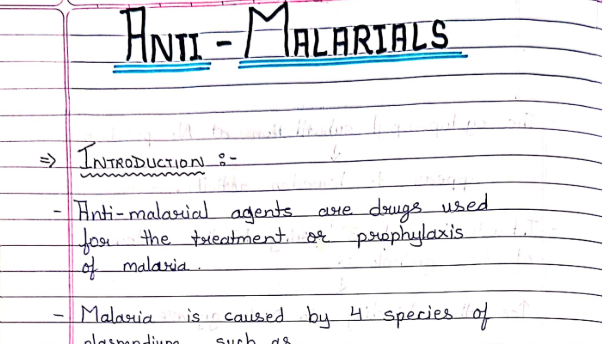 ANTI - MALARIALS
⇒ INTRODUCTION :-
- Anti-malarial agents are drugs used
for the treatment or prophylaxis
of malaria.
- Malaria is caused by 4 species of
plasmodium such as